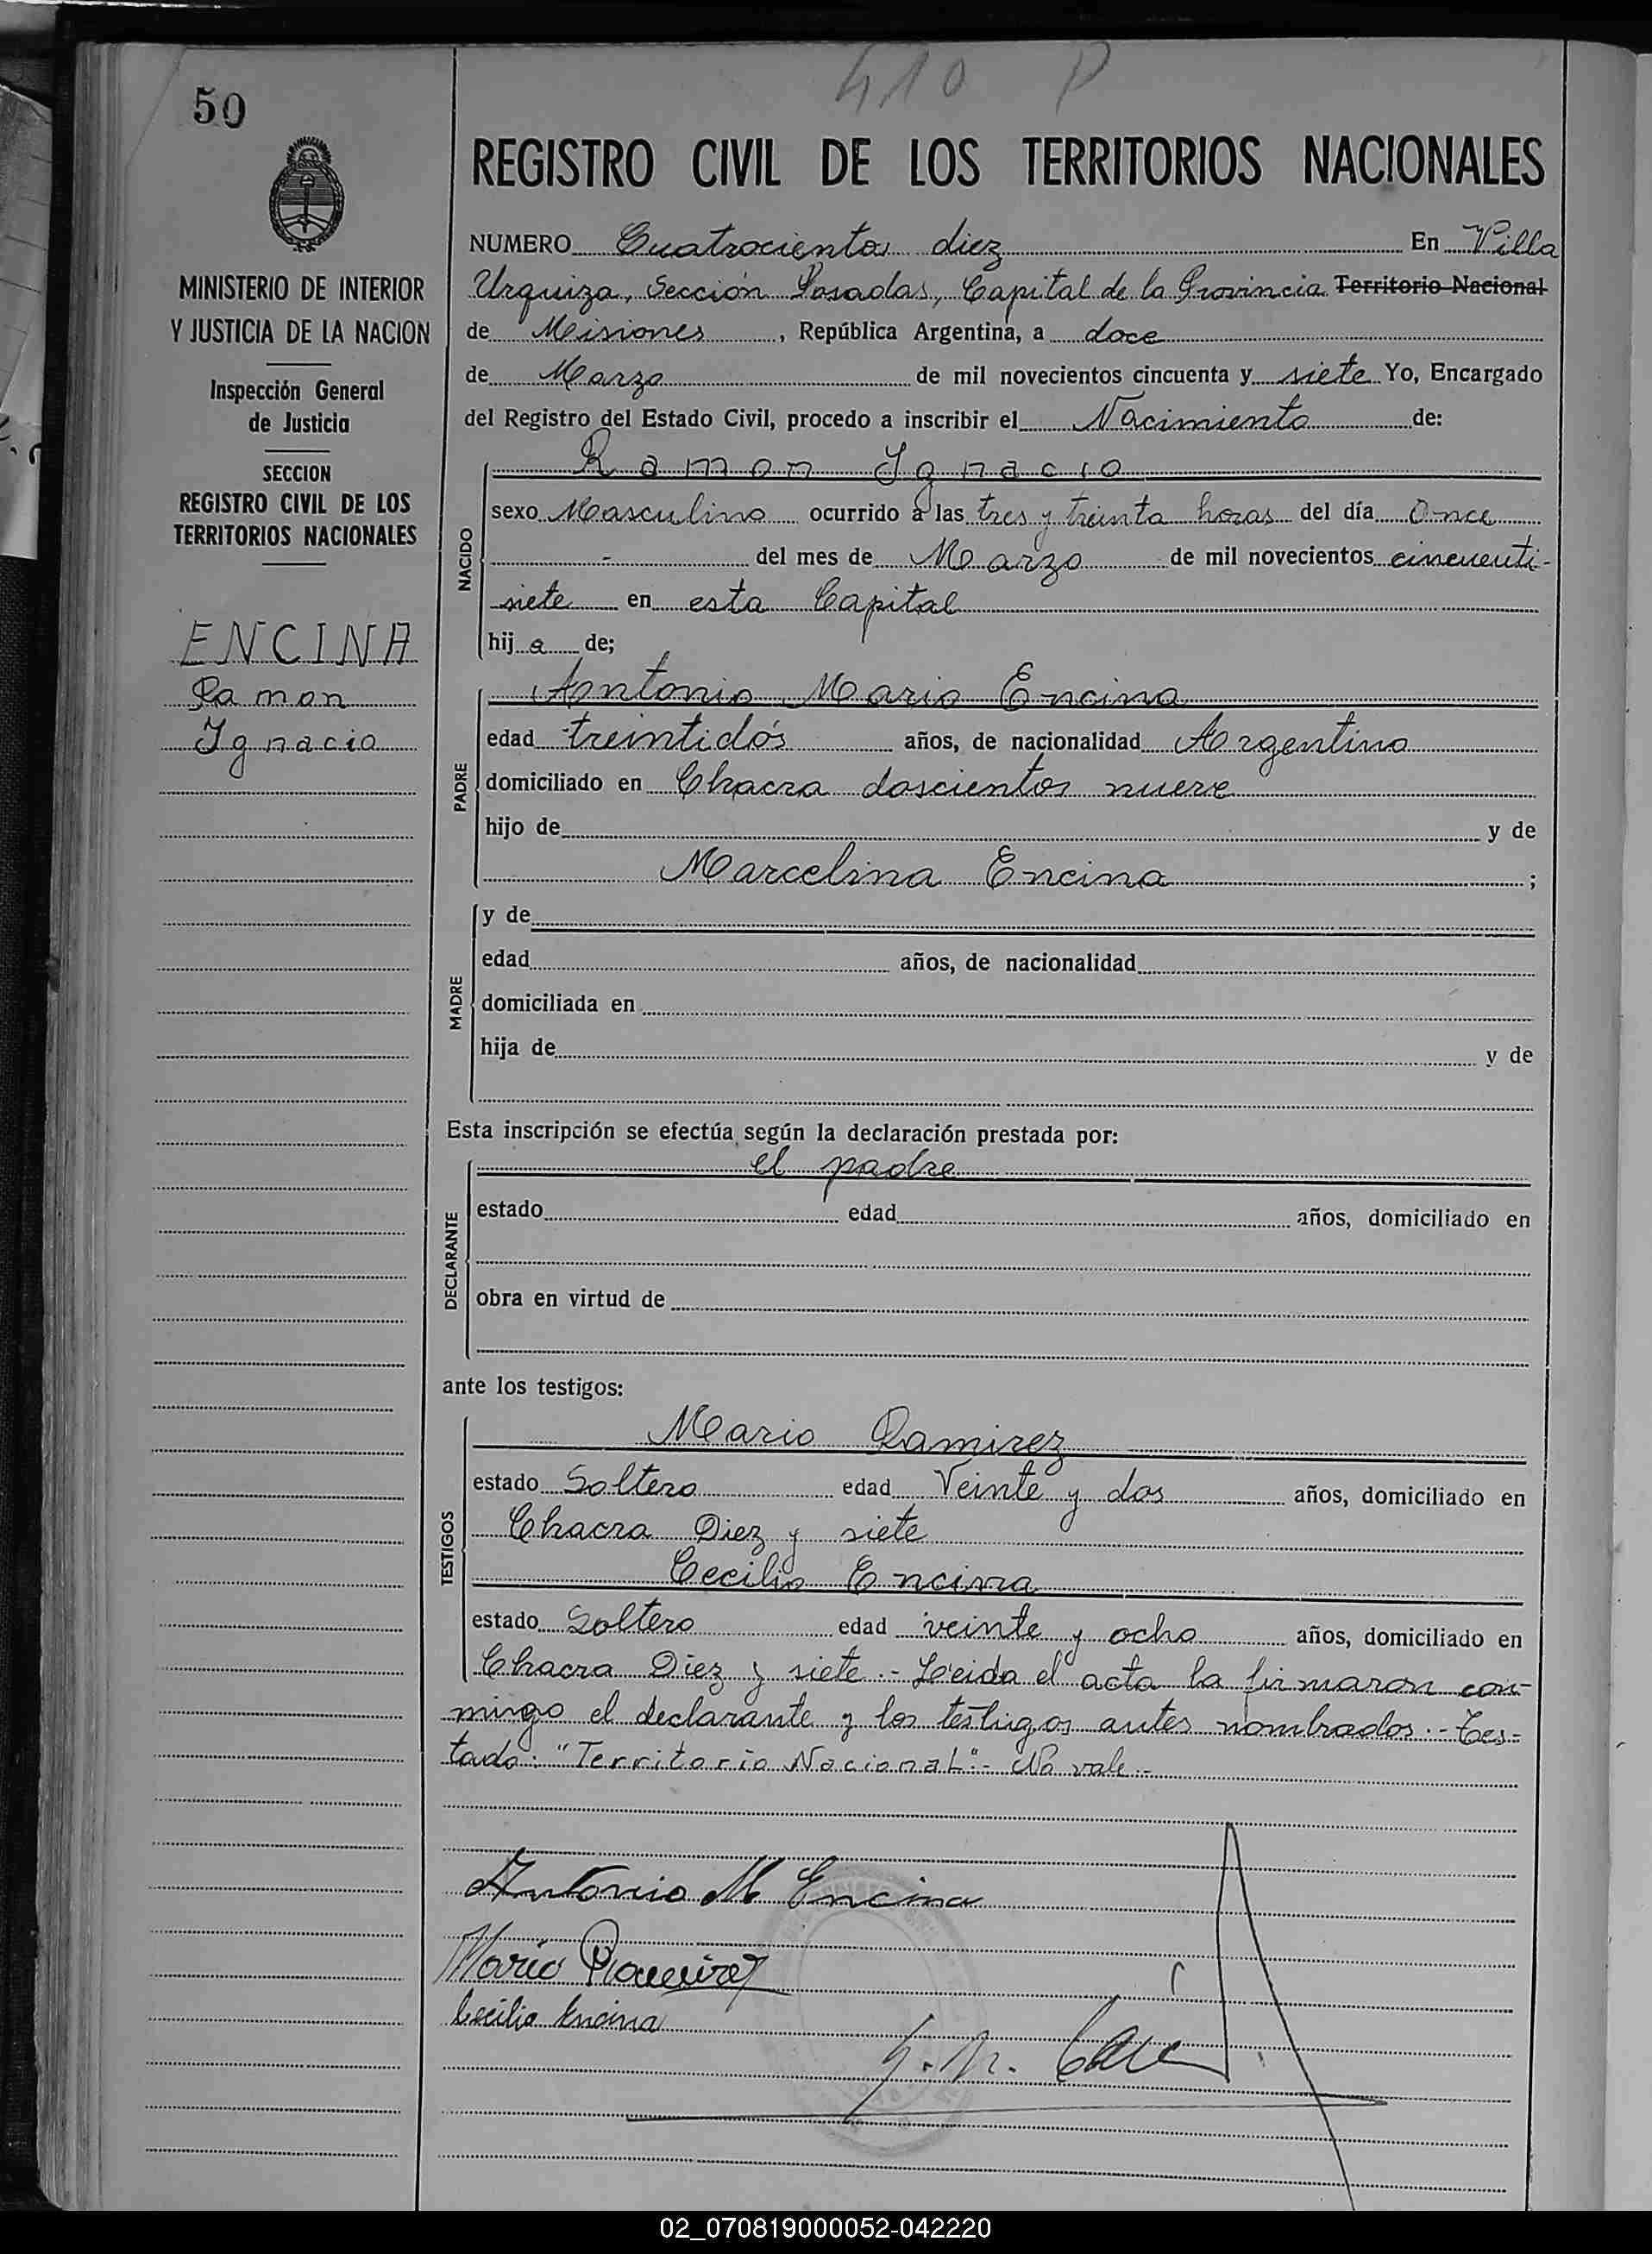 410 P
50
REGISTRO CIVIL DE LOS TERRITORIOS NACIONALES
MINISTERIO DE INTERIOR
Y JUSTICIA DE LA NACION
Inspección General
de Justicia
SECCION
REGISTRO CIVIL DE LOS
TERRITORIOS NACIONALES
ENCINA
Ramon
Ignacio
NUMERO Cuatrocientos diez En Villa
Urquiza, Sección Posadas, Capital de la Provincia Territorio Nacional
de Misiones, República Argentina, a doce
de Marzo de mil novecientos cincuenta y siete Yo, Encargado
del Registro del Estado Civil, procedo a inscribir el Nacimiento de:
NACIDO
Ramon Ignacio
sexo Masculino ocurrido a las tres y treinta horas del día Once
- del mes de Marzo de mil novecientos cincuenti-
siete en esta Capital
hij a de;
PADRE
Antonio Mario Encina
edad treintidós años, de nacionalidad Argentino
domiciliado en Chacra doscientos nueve
hijo de y de
Marcelina Encina ;
MADRE
y de
edad años, de nacionalidad
domiciliada en
hija de y de
Esta inscripción se efectúa según la declaración prestada por:
DECLARANTE
el padre
estado edad años, domiciliado en
obra en virtud de
ante los testigos:
TESTIGOS
Mario Ramirez
estado Soltero edad Veinte y dos años, domiciliado en
Chacra Diez y siete
Cecilio Encina
estado Soltero edad veinte y ocho años, domiciliado en
Chacra Diez y siete.- Leida el acta la firmaron con-
migo el declarante y los testigos antes nombrados.- Tes-
tado: "Territorio Nacional".- No vale.-
Antonio M Encina
Mario Ramirez
Cecilio Encina
02_070819000052-042220